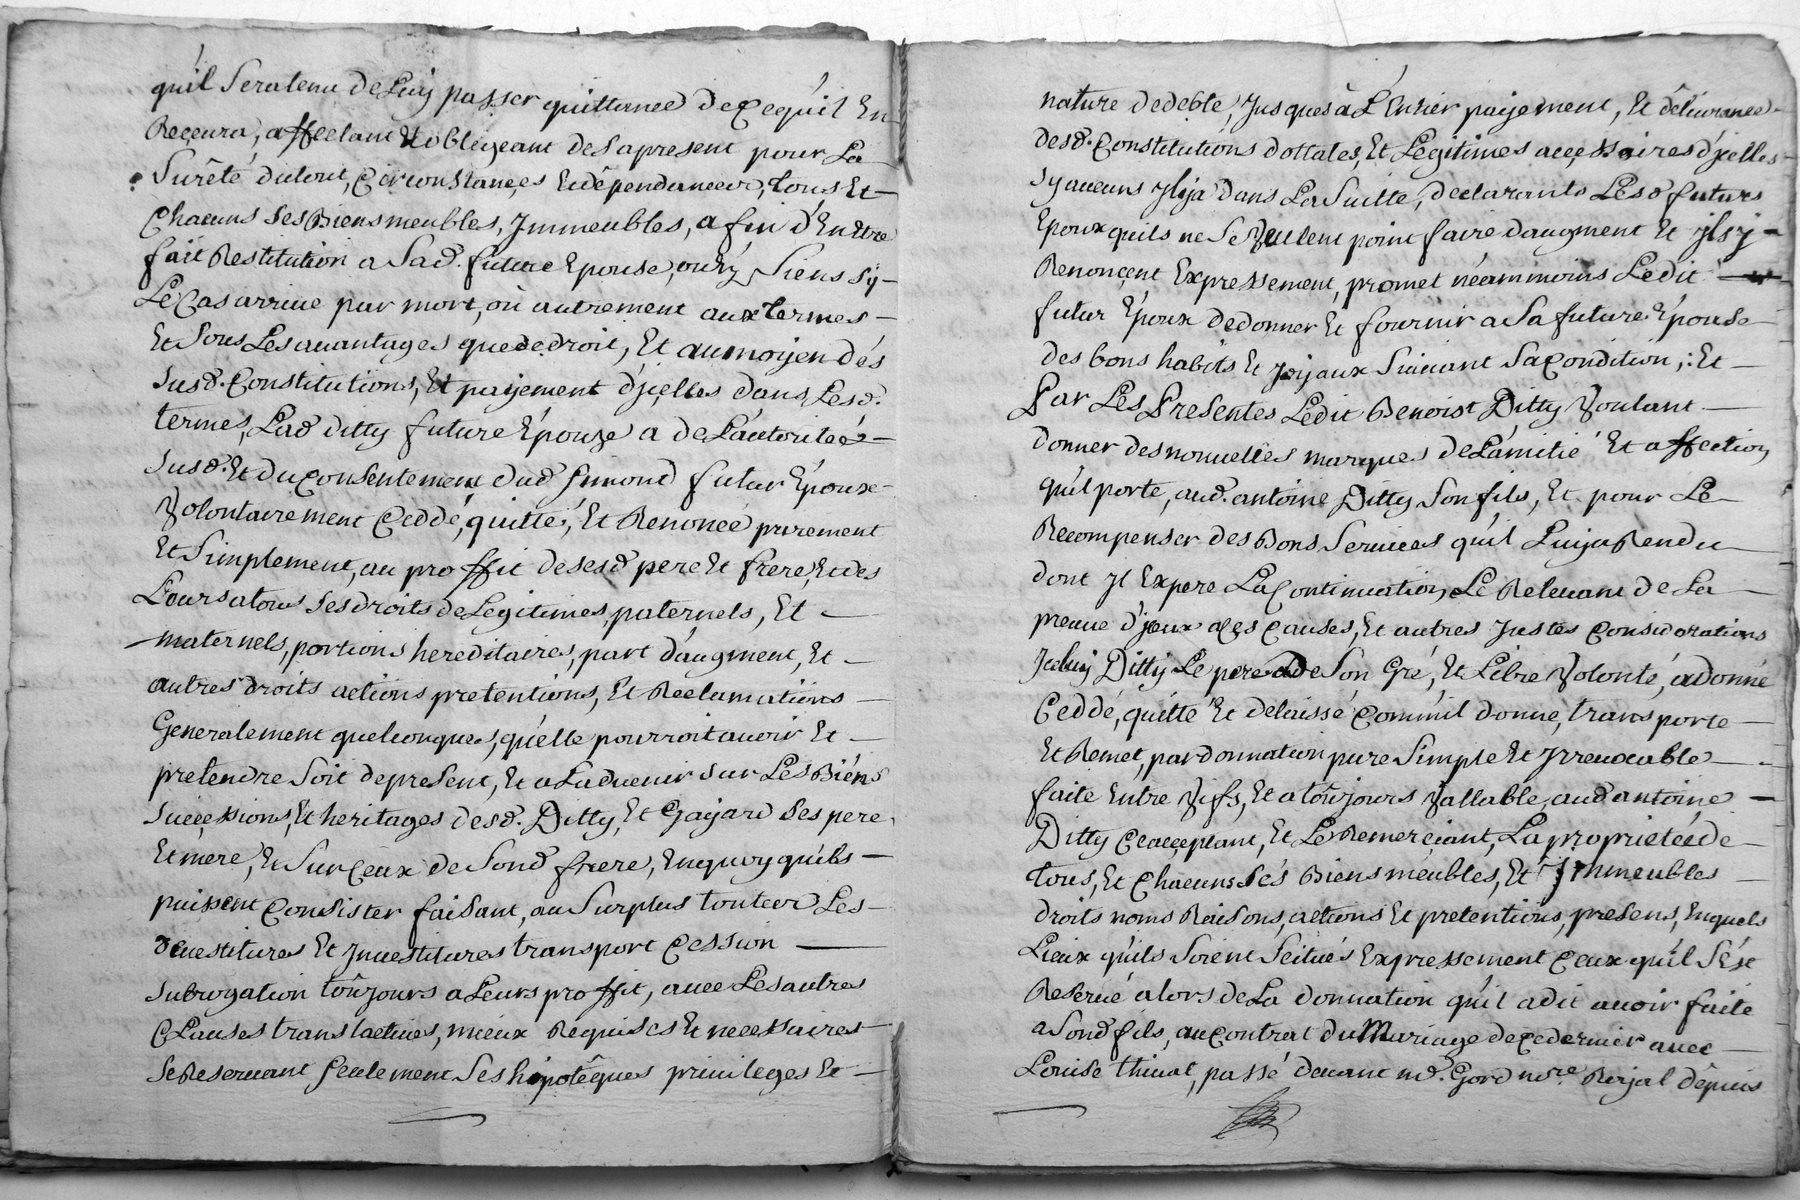 qu'il Sera tenu de Luy passer quittance de Ce qu'il En
Recevra, affectant Et obligeant des apresent pour La
Surêté dutout, Circonstances Et dépendances, tous Et
Chacuns Ses Biens meubles, Immeubles, a fin d'En Etre
fait Restitution a Sad. future Epouse, ou Siens Sy
Le Cas arrive par mort, où autrement aux termes
Et Sous Les avantages que de droit, Et au moyen dés
Susd. Constitutions, Et payement d'jcelles dans Lesd.
termes, Lad ditty future Épouze a de L'autoriteé
Susd. Et du Consentement dud Simond futur Époux
Volontairement Ceddé, quitté, Et Renoncé purement
Et Simplement, au proffit desesd pere Et frere, Et des
Leurs atous Ses droits de Legitimes, paternels, Et
maternels, portions hereditaires, part d'augment, Et
autres droits actions pretentions, Et Reclamations
Generalement quelconques, qu'elle pourroit avoir Et
pretendre Soit de present, Et a Ladvenir sur Les Biéns
Successions, Et heritages desd. Ditty, Et Gayard Ses pere
Et mere, Et Sur Ceux de Sond frere, En quoy qu'ils
puissent Consister faisant, au Surplus toutes Les
devestitures Et Jnvestitures transport Cession
Subrogation toûjours a Leurs proffit, avec Les autres
Clauses translatives, mieux Requises Et necessaires
Se Reservant Seulement Ses hipotêques privileges Et
nature de debte, Jusques à L'Entier paijement, Et délivrance
desd. Constitutions dottales, Et Legitimes accessoires d'jcelles
Sy aucuns Jlija dans La Suitte, declarants Lesd futurs
Epoux quils ne Se Veulent point faire daugment Et jlsy
Renonçent Expressement, promet néammoins Ledit
futur Époux de donner Et fournir a Sa future Épouse
des bons habits Et Joijaux Suivant Sa Condition,: Et
Par Les Presentes Ledit Benoist Ditty Voulant
donner des nouvelles marques de L'amitié Et affection
qu'il porte, aud. antoine Ditty Son fils, Et pour Le
Recompenser des Bons Services qu'il Luij a Rendu
dont Jl Expere La Continuation, Le Relevant de La
preuve d'jceux a Ces Causes, Et autres Justes Considerations
Jceluy Ditty Le pere de Son Gré, Et Libre Volonté, a donné
Ceddé, quitté Et delaissé Comm'il donne, transporte
Et Remet, par donnation pure Simple Et Jrrevocable
faite Entre Vifs, Et a toûjours Vallable, aud antoine
Ditty Ce acceptant, Et Le Remerçiant, La proprieteé de
tous, Et Chacuns Sés Biens méubles, Et Jmmeubles
droits noms Raisons, actions Et pretentions, presens, En quels
Lieux qu'ils Soient Scitués Expressement Ceux qu'il S'ést
Reservé alors de La donnation qu'il a dit avoir faite
a Sond fils, au Contrat du Mariage de Ce dernier avec
Louise thivat, passé devant md. Gord nore. Roijal dêpuis